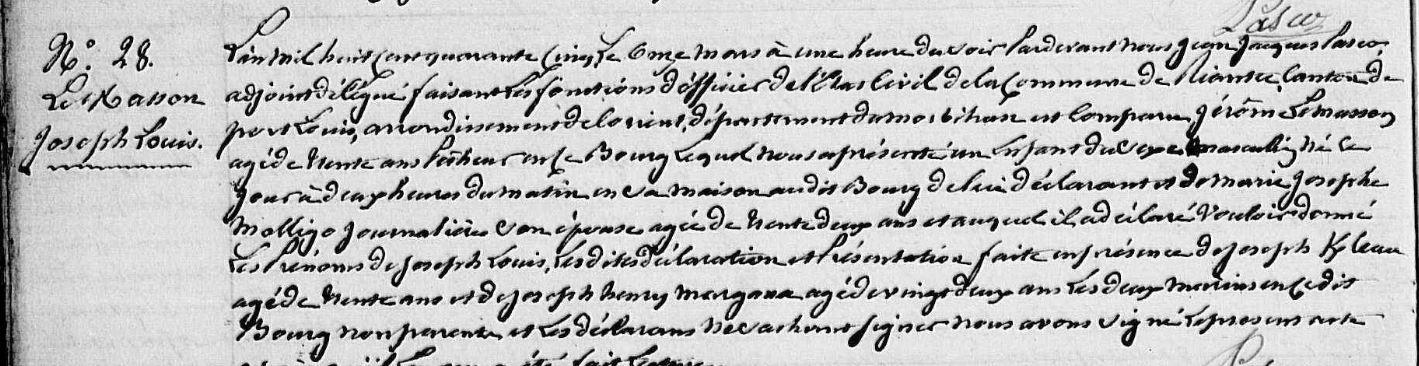 Lasco
N.° 28.
Le Masson
Joseph Louis.
L'an mil huit cent quarante cinq le 6me mars à une heure du soir Pardevant nous Jean Jacques Lasco,
adjoint délégué faisant les fonctions d'officier de l'état Civil de la Commune de Riantec, Canton de
port Louis, arrondissement de Lorient, département du morbihan est Comparu Jérôme Le Masson
agé de trente ans Pêcheur en ce Bourg lequel nous a présenté un Enfant du sexe masculin né ce
jour à deux heures du matin en sa maison au dit Bourg de lui déclarant et de Marie Josephe
Molligo journalière son épouse agée de trente deux ans et auquel il a déclaré vouloir donné
les prénoms de Joseph Louis, Les dites déclaration et Présentation faite en présence de Joseph
agé de trente ans et de Joseph henry agé de vingt deux ans les deux marins en ce dit
Bourg non parents et les déclarans ne sachant signer nous avons signé le présent acte
été fait Lecture